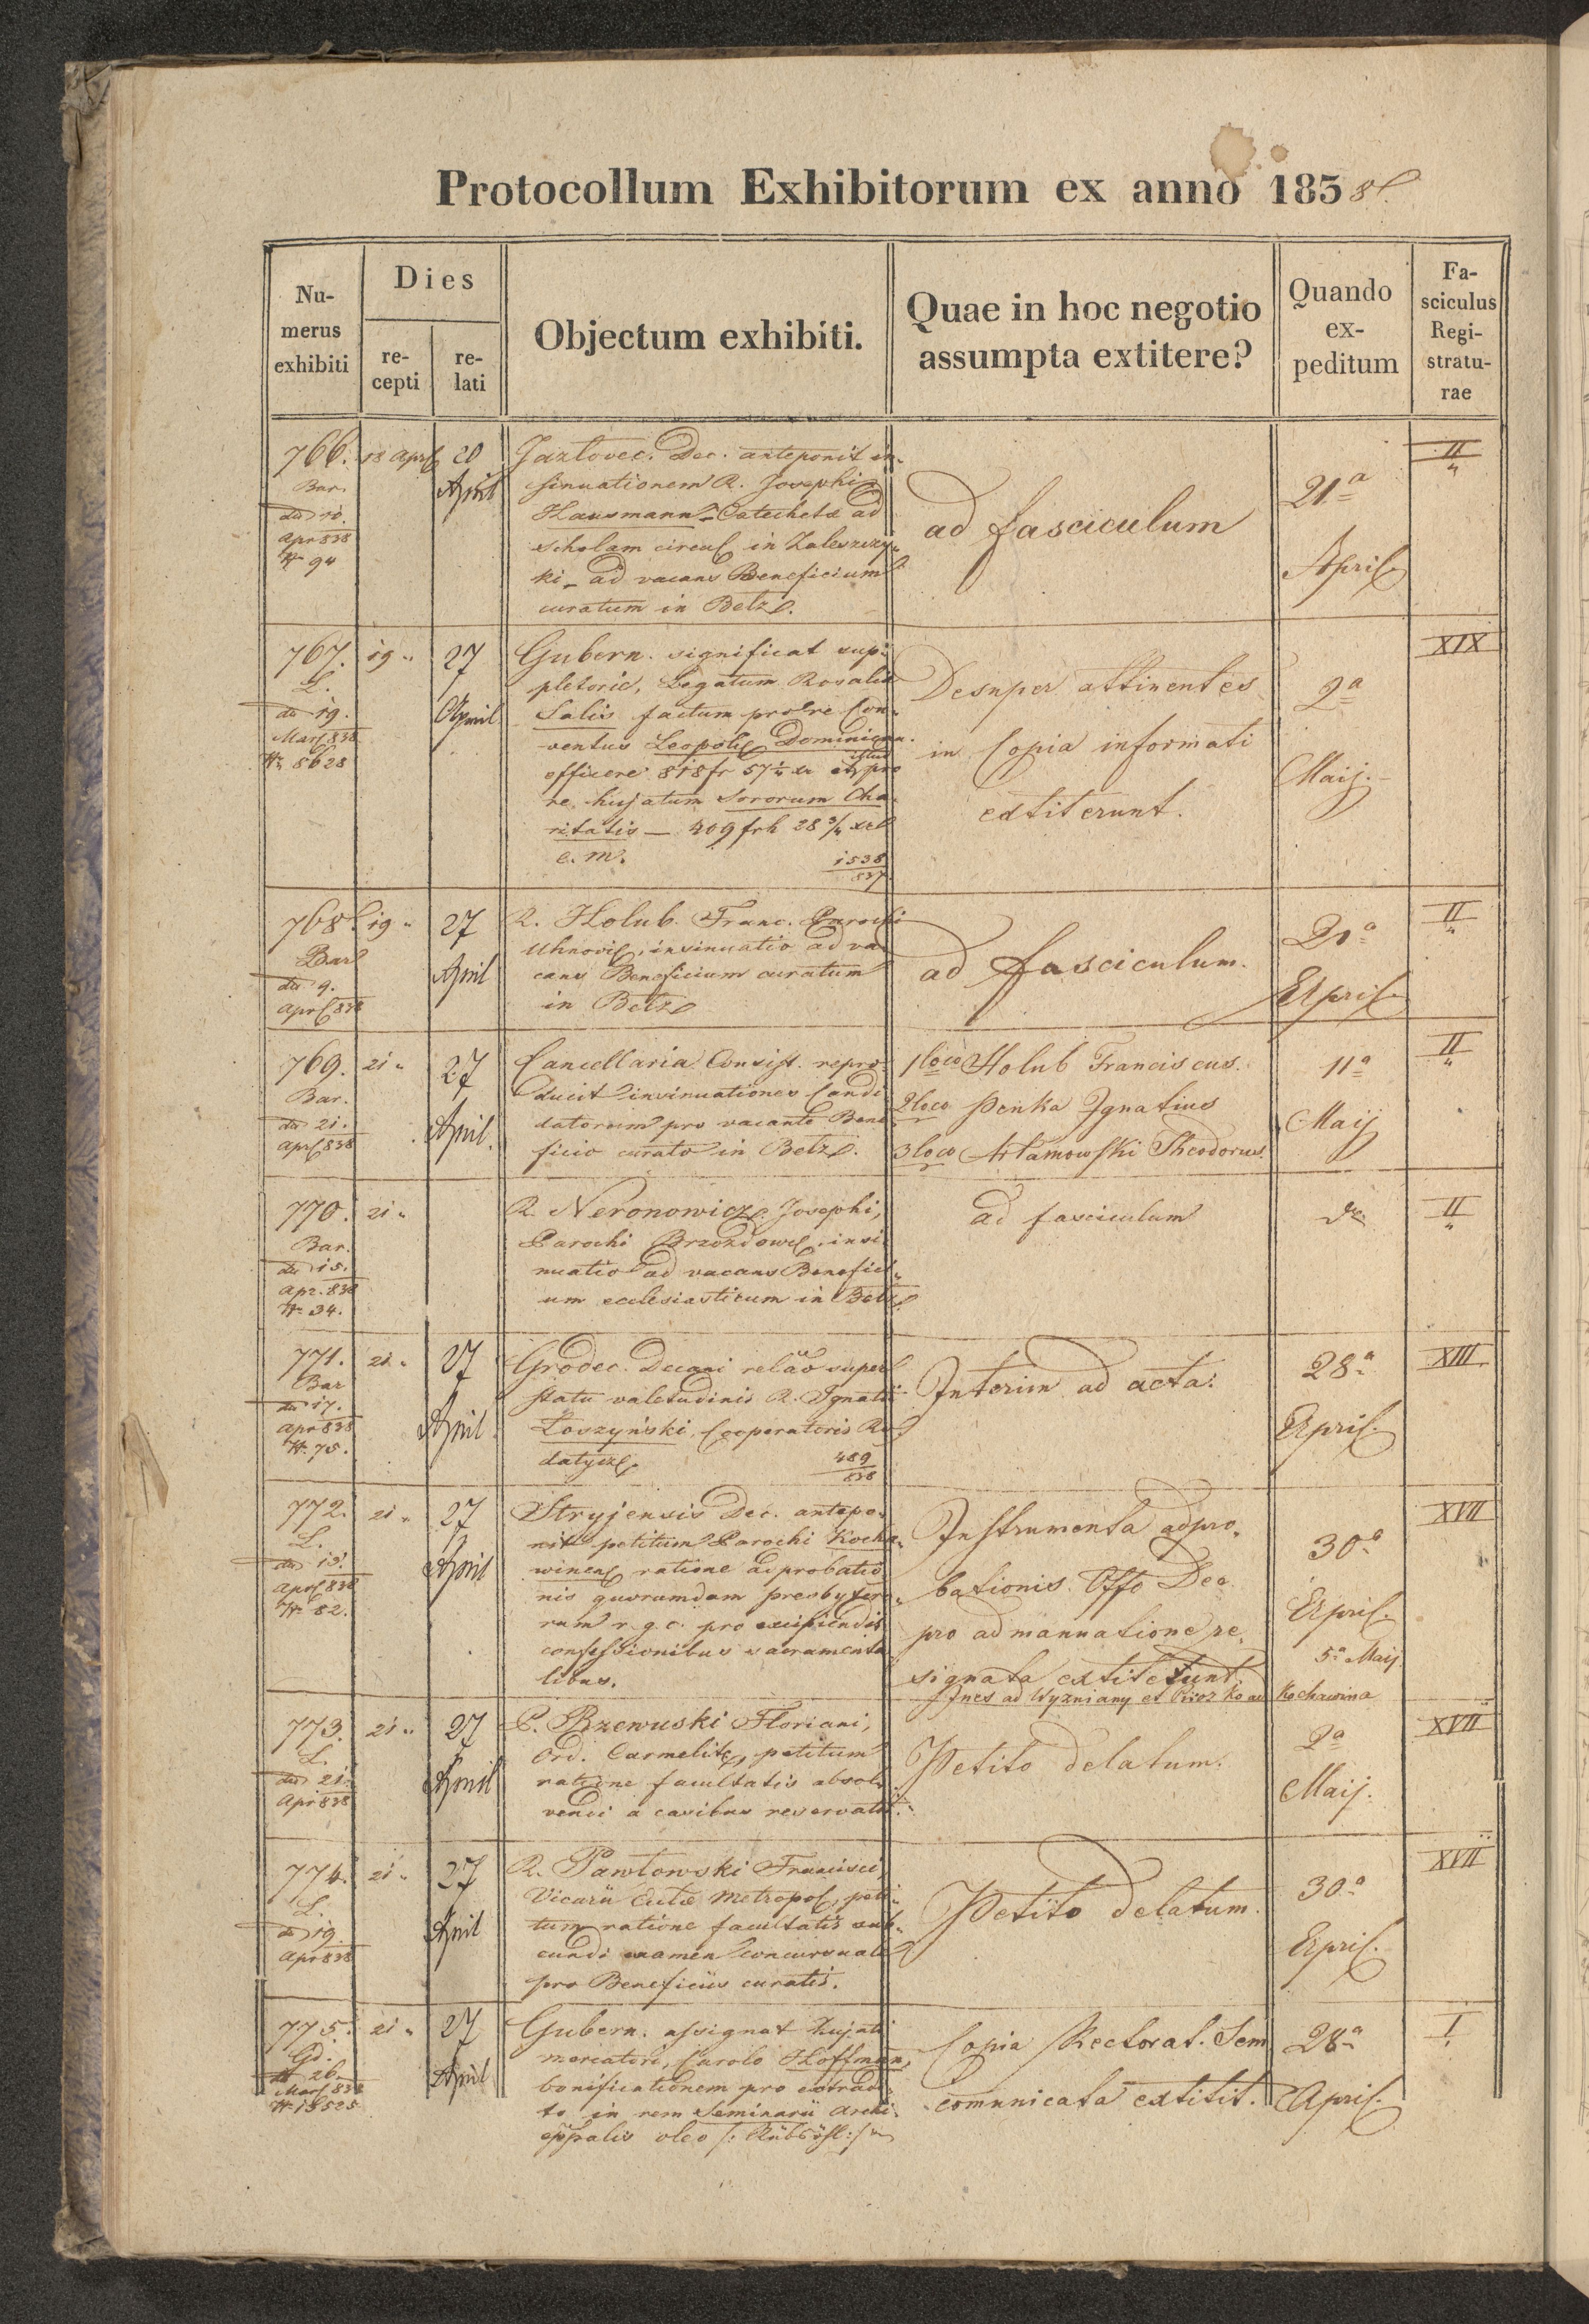 Protocollum Exhibitorum ex anno 1838.
Numerus exhibiti
Dies
recepti
relati
Objectum exhibiti.
Quae in hoc negotio assumpta extitere?
Quando expeditum
Fasciculus Registraturae
766.
Bar.
dto 10.
Apr 838
Nr 94
18 April
20
April
Jazlovec. Dec. anteponit in-
sinuationem R. Josephi
Hausmann - Catechetæ ad
scholam circul in Zaleszczy-
ki - ad vacans Beneficium
curatum in Betz.
ad fasciculum
21a
April
II
767.
L.
dto 19.
Mar 838
Nr 8628
19 "
27
April
Gubern. significat sup-
pletorie, Legatum Rosaliæ
Salis factum pro re Con-
ventus Leopol Dominican.
efficere 818 fr 57¼ xr et pro
istud
re hujatum Sororum Cha-
ritatis — 409 frh 28¾ xr
c. m.
1538
837
Desuper attinentes
in Copia informati
extiterunt.
2a
Maij.
XIX
768
Bar
dto 9.
Apr 838
19 "
27
April
R. Holub Franc. Parochi
Uhnovi, insinuatio ad va-
cans Beneficium curatum
in Betz
ad fasciculum.
April
II
769.
Bar.
dto 21.
Apr 838
21 "
27
April.
Cancellaria Consist. repro-
ducit insinuationes Candi-
datorum pro vacante Bene-
ficio curato in Betz.
1 loco Holub Franciscus.
2 loco Penka Ignatius
3 loco Artamowski Theodorus.
11a
Maij
II
770.
Bar.
dto 15.
Apr. 838
Nr 34.
21 "
R. Neronowicz Josephi,
Parochi Brzozdow, insi-
nuatio ad vacans Benefici-
um ecclesiasticum in Betz.
ad fasciculum
do
II
771.
Bar
dto 17.
Apr 838
Nr. 75.
21 "
27
April
Grodec. Decani relao super
statu valetudinis R. Ignatii
Łoszyński, Cooperatoris Ru-
datycz
489
838
Interim ad acta.
28a
April.
XIII
772.
L.
dto 13.
Apr 838
Nr. 82.
21 "
27
April
Stryjensis Dec. antepo-
nit petitum Parochi Kocha-
winen ratione adprobatio-
nis quorumdam presbytero-
rum r. g. c. pro excipiendis
confessionibus sacramenta-
libus.
Instrumenta adpro-
bationis Offo Dec
pro admanuatione re-
signata extiterunt.
30a
April.
5a Maij
XVII
773.
L.
dto 21.
Apr 838
21 "
27
April
P. Rzewuski Floriani,
Ord. Carmelit, petitum
ratione facultatis absol-
vendi a casibus reservatis.
Petito delatum.
2a
Maij.
XVII
774.
L.
dto 19
Apr 838
21 "
27
April
R. Pawłowski Francisci
Vicarii Metropol, peti-
tum ratione facultatis sub-
eundi examen concursuale
pro Beneficiis curatis.
Petito delatum.
30a
April.
XVII
775.
Gd.
dto 26.
Mar 838
Nr 13525
21 "
27
April
Gubern. assignat hujati
mercatori, Carolo Hoffman,
bonificationem pro extradi-
to in rem Seminarii Archi-
eppalis oleo /: Rübsöhl :/
Copia Rectorat. Sem
comunicata extitit.
28a
April.
I